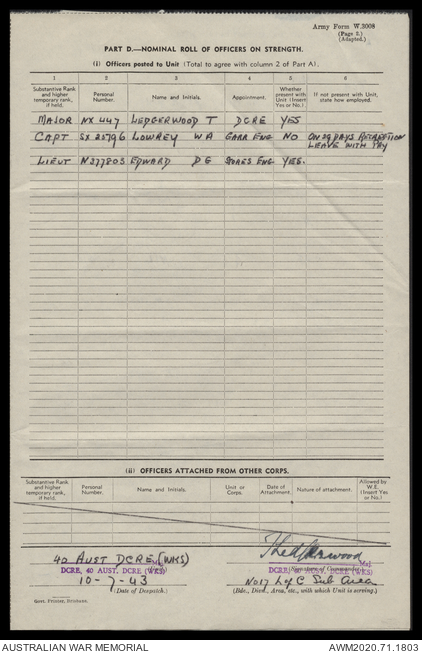 Army Form W.3008
(Page 2.)
(Adapted.)
PART D.—NOMINAL ROLL OF OFFICERS ON STRENGTH.
(i) Officers posted to Unit (Total to agree with column 2 of Part A).
1 2 3 4 5 6
Substantive Rank and higher temporary rank, if held. Personal Number. Name and Initials. Appointment. Whether present with Unit (Insert Yes or No.) If not present with Unit, state how employed.
MAJOR NX 447 LEDGERWOOD T DCRE YES
CAPT SX 25796 LOWREY W A GARR ENG NO ON 29 DAYS RECREATION
LEAVE WITH PAY
LIEUT N277805 EDWARD D E STORES ENG YES.
(ii) OFFICERS ATTACHED FROM OTHER CORPS.
Substantive Rank and higher temporary rank, if held. Personal Number. Name and Initials. Unit or Corps. Date of Attachment. Nature of attachment. Allowed by W.E. (Insert Yes or No.)
40 AUST DCRE (WKS)
DCRE, 40 AUST. DCRE (WKS) Maj.
10-7-43 No 17 L of C Sub Area
(Date of Despatch.) (Bde., Divn., Area, etc., with which Unit is serving.)
Govt. Printer, Brisbane.
AUSTRALIAN WAR MEMORIAL AWM2020.71.1803